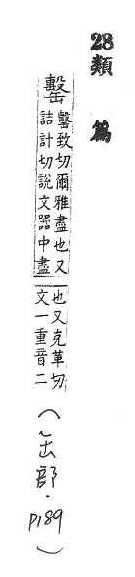 28類篇
罊 罊致切爾雅盡也又
詰計切說文器中盡
也又克革切
文一重音二
(缶部・P189)